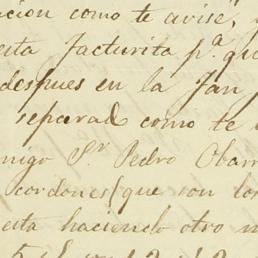 cion como te avisé,
esta facturita p.a que
despues en la Jan
separad como te
migo Sr. Pedro Obarr
cordones (que son los
esta haciendo otro